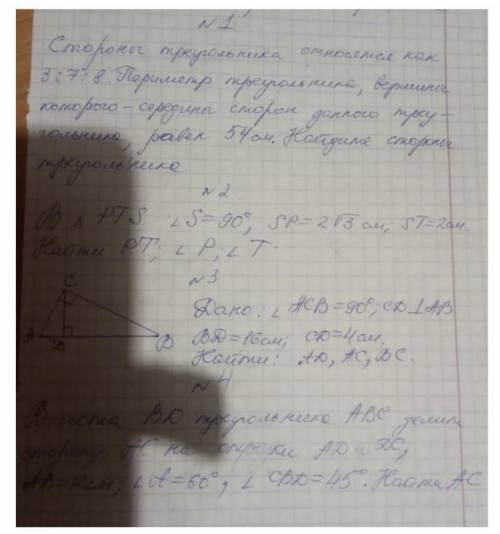 №1
Стороны треугольника относятся как
3:7:8. Периметр треугольника, вершины
которого – середины сторон данного треу-
гольника, равен 54 см. Найдите стороны
треугольника
№2
В △ PTS ∠S=90°, SP=2√3 см; ST=2см.
Найти PT; ∠P; ∠T.
№3
C
Дано: ∠ACB=90°; CD⊥AB
A D B BD=16см; CD=4см.
Найти: AD, AC, BC.
№4
Высота BD треугольника ABC делит
сторону AC на отрезки AD и DC,
AB=12см; ∠A=60°, ∠CBD=45°. Найти AC